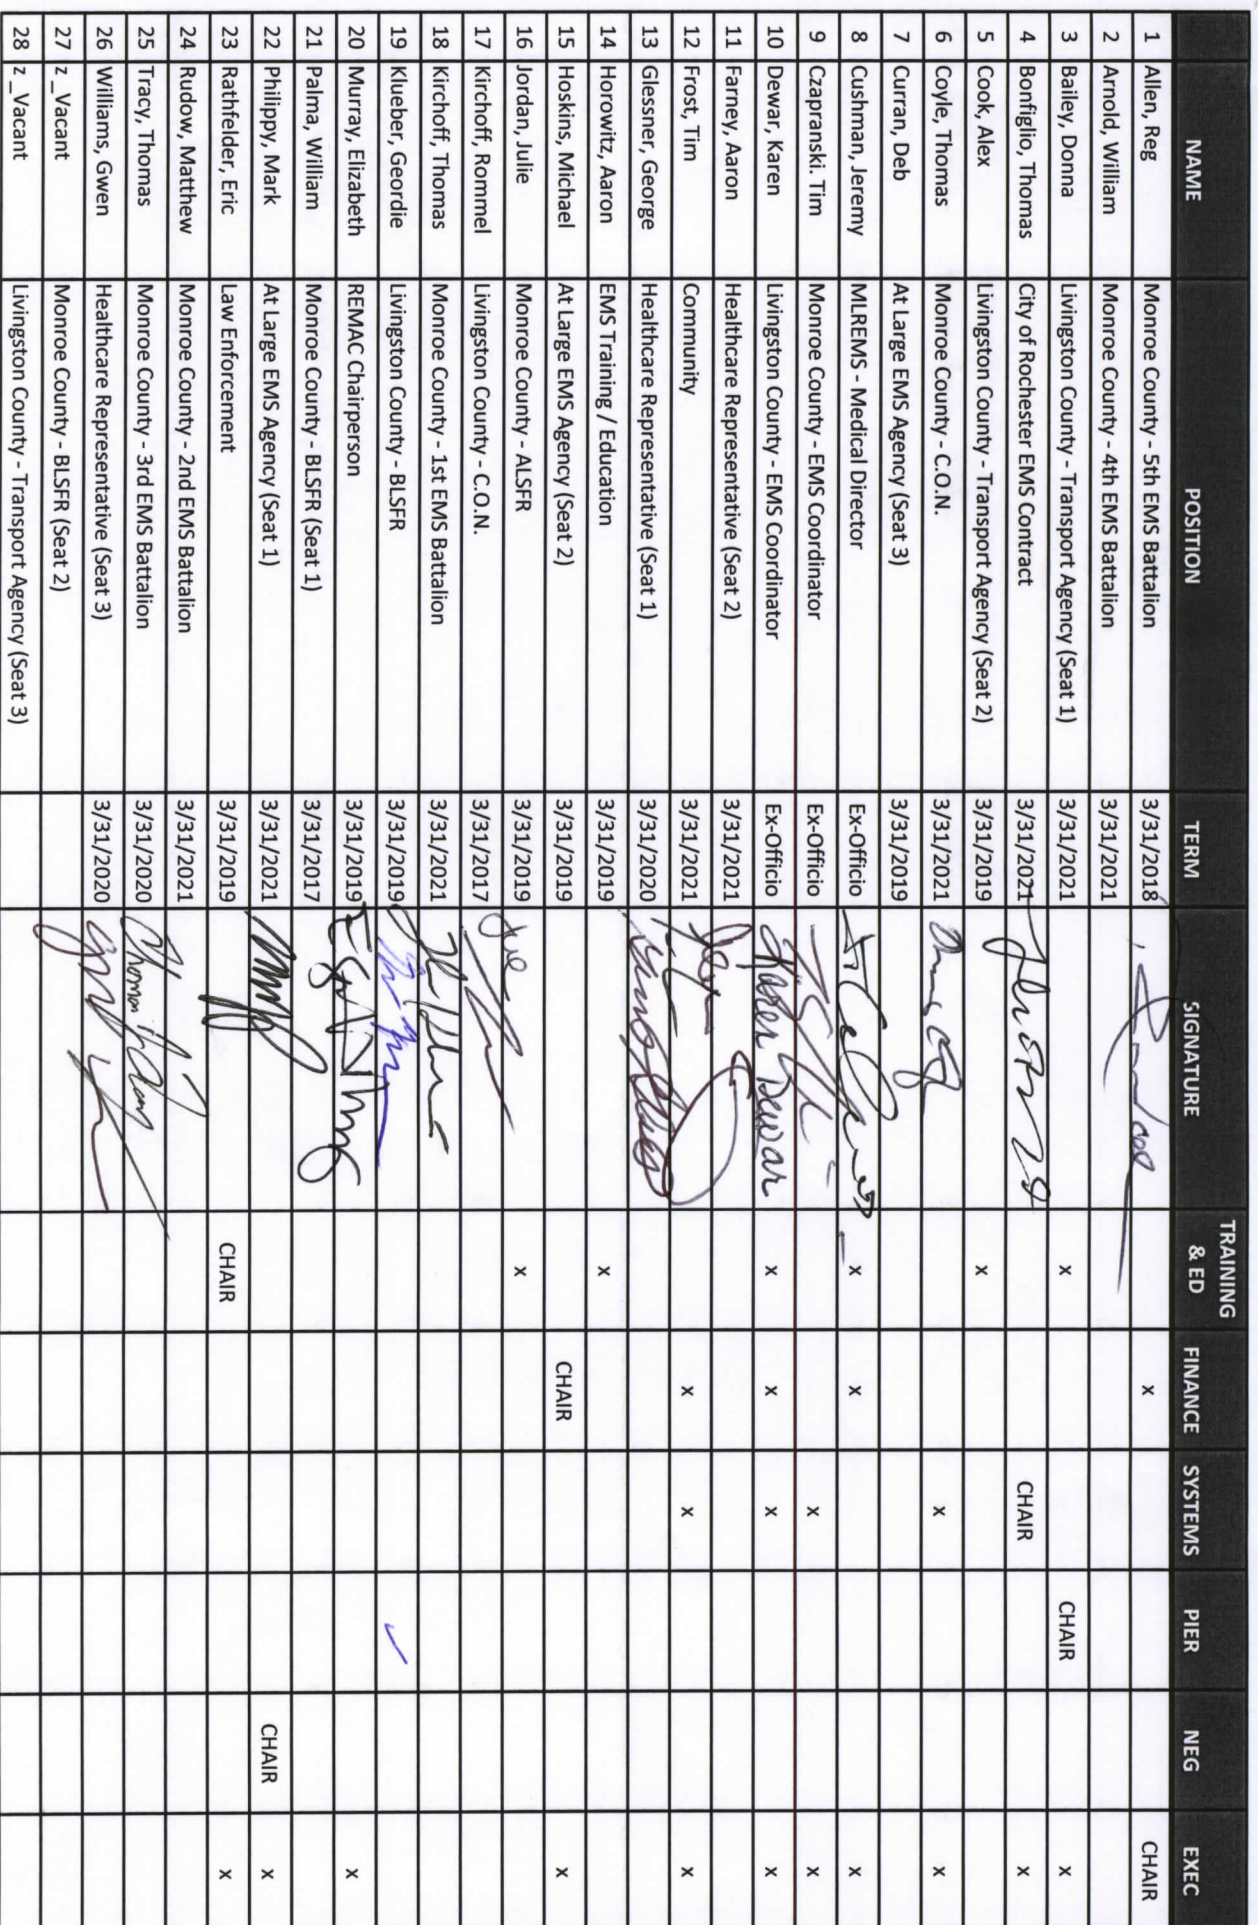 NAME POSITION TERM SIGNATURE TRAINING & ED FINANCE SYSTEMS PIER NEG EXEC
1 Allen, Reg Monroe County - 5th EMS Battalion 3/31/2018 x CHAIR
2 Arnold, William Monroe County - 4th EMS Battalion 3/31/2021
3 Bailey, Donna Livingston County - Transport Agency (Seat 1) 3/31/2021 x CHAIR x
4 Bonfiglio, Thomas City of Rochester EMS Contract 3/31/2021 CHAIR x
5 Cook, Alex Livingston County - Transport Agency (Seat 2) 3/31/2019 x
6 Coyle, Thomas Monroe County - C.O.N. 3/31/2021 x x
7 Curran, Deb At Large EMS Agency (Seat 3) 3/31/2019
8 Cushman, Jeremy MLREMS - Medical Director Ex-Officio x x x
9 Czapranski. Tim Monroe County - EMS Coordinator Ex-Officio x x
10 Dewar, Karen Livingston County - EMS Coordinator Ex-Officio Karen Dewar x x x x
11 Farney, Aaron Healthcare Representative (Seat 2) 3/31/2021
12 Frost, Tim Community 3/31/2021 x x x
13 Glessner, George Healthcare Representative (Seat 1) 3/31/2020
14 Horowitz, Aaron EMS Training / Education 3/31/2019 x
15 Hoskins, Michael At Large EMS Agency (Seat 2) 3/31/2019 CHAIR x
16 Jordan, Julie Monroe County - ALSFR 3/31/2019 x
17 Kirchoff, Rommel Livingston County - C.O.N. 3/31/2017
18 Kirchoff, Thomas Monroe County - 1st EMS Battalion 3/31/2021
19 Klueber, Geordie Livingston County - BLSFR 3/31/2019 ✓
20 Murray, Elizabeth REMAC Chairperson 3/31/2019 x
21 Palma, William Monroe County - BLSFR (Seat 1) 3/31/2017
22 Philippy, Mark At Large EMS Agency (Seat 1) 3/31/2021 CHAIR x
23 Rathfelder, Eric Law Enforcement 3/31/2019 CHAIR x
24 Rudow, Matthew Monroe County - 2nd EMS Battalion 3/31/2021
25 Tracy, Thomas Monroe County - 3rd EMS Battalion 3/31/2020
26 Williams, Gwen Healthcare Representative (Seat 3) 3/31/2020
27 z_Vacant Monroe County - BLSFR (Seat 2)
28 z_Vacant Livingston County - Transport Agency (Seat 3)